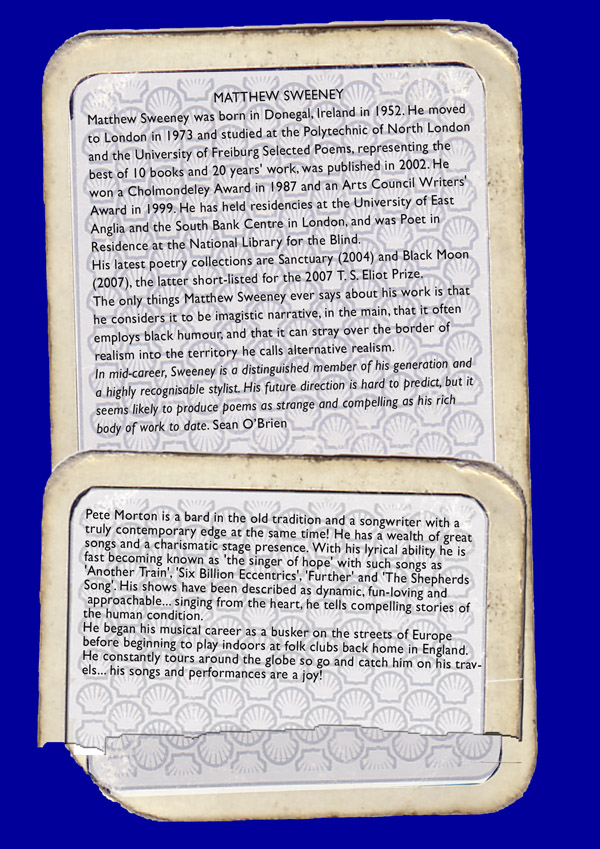 MATTHEW SWEENEY
Matthew Sweeney was born in Donegal, Ireland in 1952. He moved
to London in 1973 and studied at the Polytechnic of North London
and the University of Freiburg Selected Poems, representing the
best of 10 books and 20 years' work, was published in 2002. He
won a Cholmondeley Award in 1987 and an Arts Council Writers'
Award in 1999. He has held residencies at the University of East
Anglia and the South Bank Centre in London, and was Poet in
Residence at the National Library for the Blind.
His latest poetry collections are Sanctuary (2004) and Black Moon
(2007), the latter short-listed for the 2007 T. S. Eliot Prize.
The only things Matthew Sweeney ever says about his work is that
he considers it to be imagistic narrative, in the main, that it often
employs black humour, and that it can stray over the border of
realism into the territory he calls alternative realism.
In mid-career, Sweeney is a distinguished member of his generation and
a highly recognisable stylist. His future direction is hard to predict, but it
seems likely to produce poems as strange and compelling as his rich
body of work to date. Sean O'Brien
Pete Morton is a bard in the old tradition and a songwriter with a
truly contemporary edge at the same time! He has a wealth of great
songs and a charismatic stage presence. With his lyrical ability he is
fast becoming known as 'the singer of hope' with such songs as
'Another Train', 'Six Billion Eccentrics', 'Further' and 'The Shepherds
Song'. His shows have been described as dynamic, fun-loving and
approachable... singing from the heart, he tells compelling stories of
the human condition.
He began his musical career as a busker on the streets of Europe
before beginning to play indoors at folk clubs back home in England.
He constantly tours around the globe so go and catch him on his trav-
els... his songs and performances are a joy!